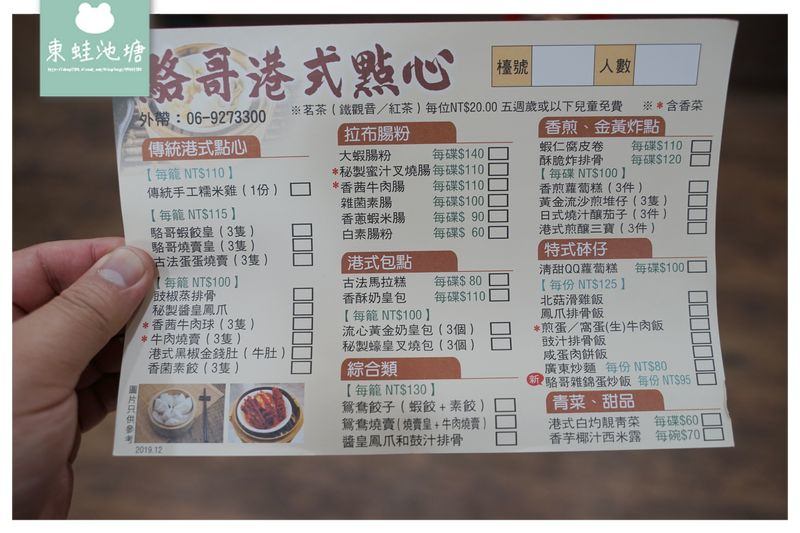 東蛙池塘
駱哥港式點心
檯號
人數
外帶：06-9273300
※茗茶（鐵觀音／紅茶）每位NT$20.00 五週歲或以下兒童免費　※*含香菜
傳統港式點心
【每籠 NT$110】
傳統手工糯米雞（1份）
【每籠 NT$115】
駱哥蝦餃皇（3隻）
駱哥燒賣皇（3隻）
古法蛋蛋燒賣（3隻）
【每籠 NT$100】
豉椒蒸排骨
秘製醬皇鳳爪
*香茜牛肉球（3隻）
*牛肉燒賣（3隻）
港式黑椒金錢肚（牛肚）
香菌素餃（3隻）
圖片只供參考
2019.12
拉布腸粉
大蝦腸粉 每碟$140
*秘製蜜汁叉燒腸 每碟$110
*香茜牛肉腸 每碟$110
雜菌素腸 每碟$100
香蔥蝦米腸 每碟$ 90
白素腸粉 每碟$ 60
港式包點
古法馬拉糕 每碟$ 80
香酥奶皇包 每碟$110
【每籠 NT$100】
流心黃金奶皇包（3個）
秘製蠔皇叉燒包（3個）
綜合類
【每籠 NT$130】
鴛鴦餃子（蝦餃+素餃）
鴛鴦燒賣（燒賣皇+牛肉燒賣）
醬皇鳳爪和豉汁排骨
香煎、金黃炸點
蝦仁腐皮卷 每碟$110
酥脆炸排骨 每碟$120
【每碟 NT$100】
香煎蘿蔔糕（3件）
黃金流沙煎堆仔（3隻）
日式燒汁釀茄子（3件）
港式煎釀三寶（3件）
特式砵仔
清甜QQ蘿蔔糕 每碟$100
【每份 NT$125】
北菇滑雞飯
鳳爪排骨飯
*煎蛋／窩蛋(生)牛肉飯
豉汁排骨飯
咸蛋肉餅飯
廣東炒麵 每份 NT$80
新 駱哥雜錦蛋炒飯 每份 NT$95
青菜、甜品
港式白灼靚青菜 每碟$60
香芋椰汁西米露 每碗$70